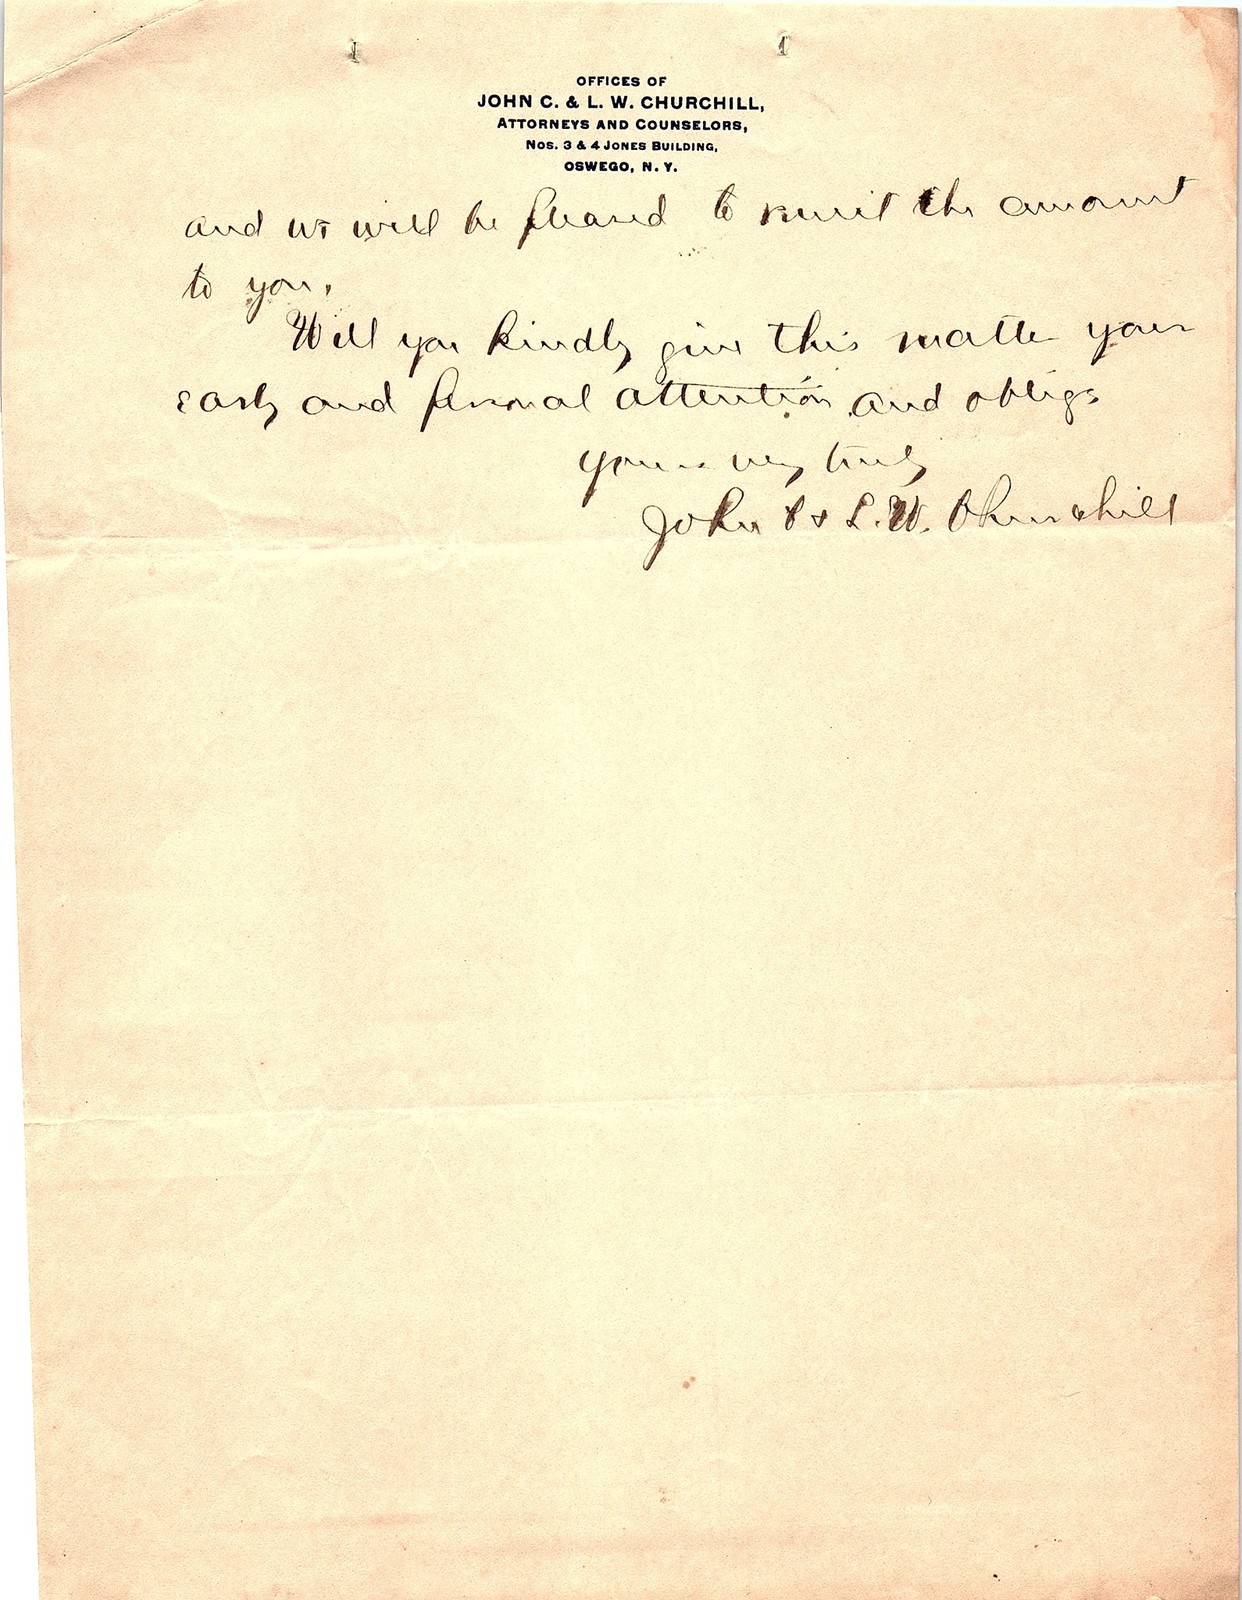 OFFICES OF
JOHN C. & L. W. CHURCHILL,
ATTORNEYS AND COUNSELORS,
NOS. 3 & 4 JONES BUILDING,
OSWEGO, N. Y.
and we will be pleased to remit the amount
to you.
Will you kindly give this matter your
early and personal attention and oblige
Yours very truly
John C & L. W. Churchill